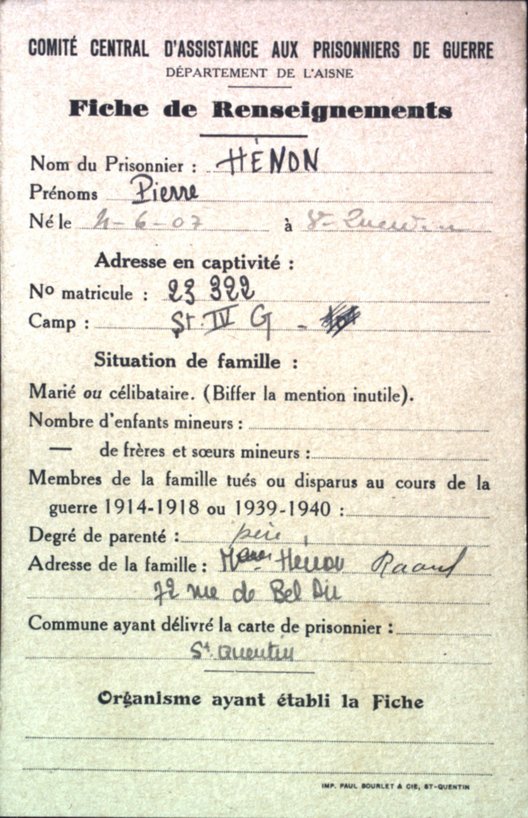 COMITÉ CENTRAL D'ASSISTANCE AUX PRISONNIERS DE GUERRE
DÉPARTEMENT DE L'AISNE
Fiche de Renseignements
Nom du Prisonnier : HÉNON
Prénoms Pierre
Né le -6-07 à St-Quentin
Adresse en captivité :
No matricule : 23 322
Camp : St. IV G -
Situation de famille :
Marié ou célibataire. (Biffer la mention inutile).
Nombre d'enfants mineurs :
— de frères et sœurs mineurs :
Membres de la famille tués ou disparus au cours de la
guerre 1914-1918 ou 1939-1940 :
Degré de parenté : père
Adresse de la famille : Hénon Raoul
72 rue de Bel Air
Commune ayant délivré la carte de prisonnier :
St Quentin
Organisme ayant établi la Fiche
IMP. PAUL BOURLET & CIE, ST-QUENTIN